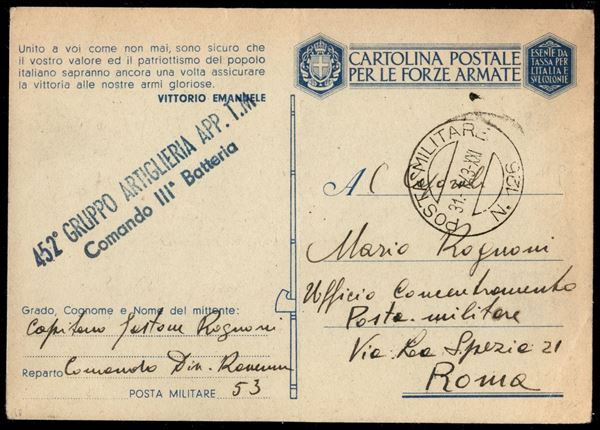 Unito a voi come non mai, sono sicuro che
il vostro valore ed il patriottismo del popolo
italiano sapranno ancora una volta assicurare
la vittoria alle nostre armi gloriose.
VITTORIO EMANUELE
CARTOLINA POSTALE
PER LE FORZE ARMATE
ESENTE DA
TASSA PER
L'ITALIA E
SUE COLONIE
452° GRUPPO ARTIGLIERIA APP. T.M.
Comando III° Batteria
POSTA MILITARE
N. 126
Al
Mario Rognoni
Ufficio Concentramento
Posta militare
Via La Spezia 21
Roma
Grado, Cognome e Nome del mittente:
Capitano Gastone Rognoni
Reparto Comando Div. Ravenna
POSTA MILITARE 53